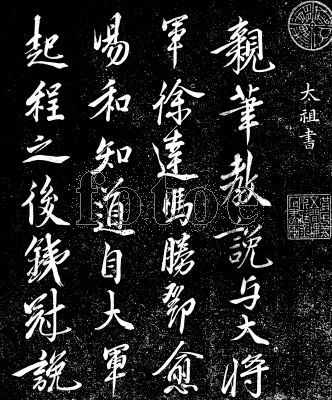 太祖書
親筆教說与大將
軍徐達馮勝鄧愈
湯和知道自大軍
起程之後鐵冠說
fotoe